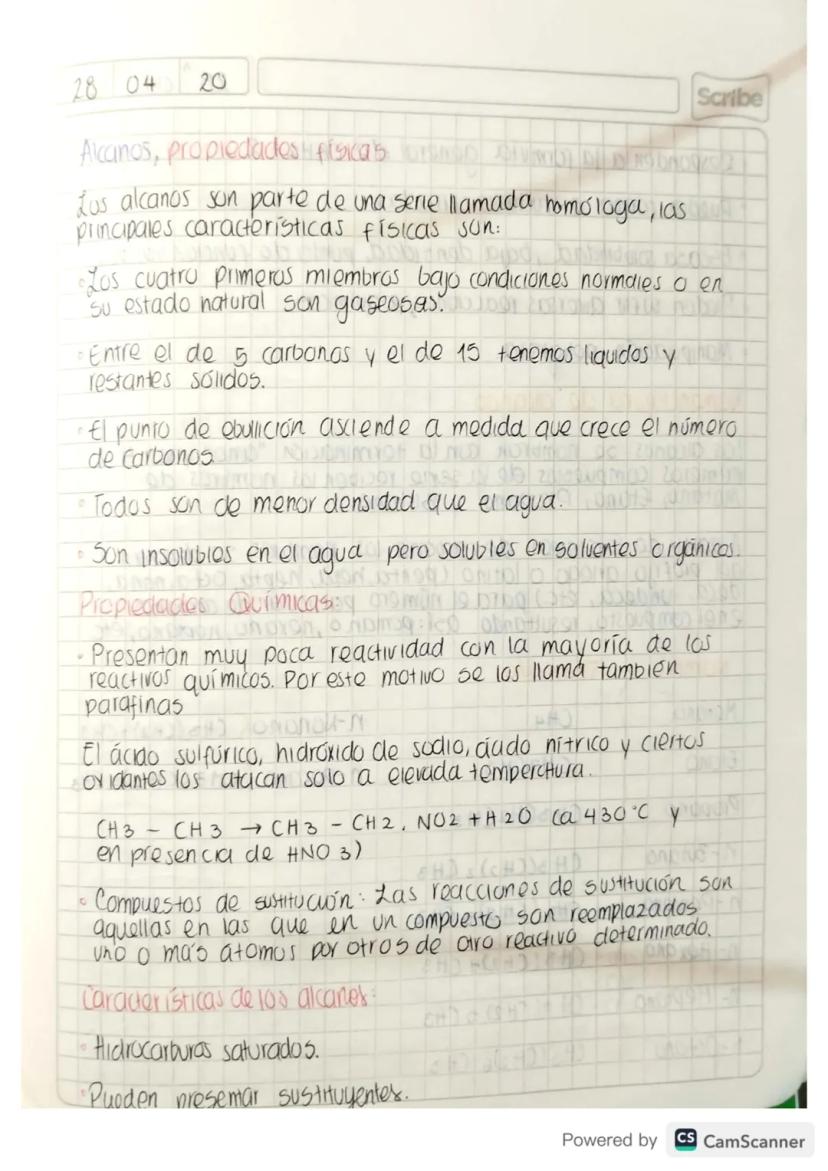 28 04 20
Scribe
Alcanos, propiedades físicas
Los alcanos son parte de una serie llamada homóloga, las
principales características físicas son:
Los cuatro primeros miembros bajo condiciones normales o en
su estado natural son gaseosas.
Entre el de 5 carbonos y el de 15 tenemos liquidos y
restantes sólidos.
El punto de ebullición asciende a medida que crece el número
de carbonos
Todos son de menor densidad que el agua.
Son insolubles en el agua pero solubles en solventes orgánicos.
Propiedades Químicas:
Presentan muy poca reactividad con la mayoría de los
reactivos químicos. Por este motivo se los llama también
parafinas
El ácido sulfúrico, hidróxido de sodio, ácido nítrico y ciertos
oxidantes los atacan solo a elevada temperctura.
CH3 - CH3 → CH3 - CH2. NO2 + H2O (a 430°C y
en presencia de HNO3)
Compuestos de sustitución: Las reacciones de sustitución son
aquellas en las que en un compuesto son reemplazados
uno o más átomos por otros de otro reactivo determinado.
Características de los alcanos:
Hidrocarburos saturados.
Pueden presentar sustituyentes.
Powered by CS CamScanner